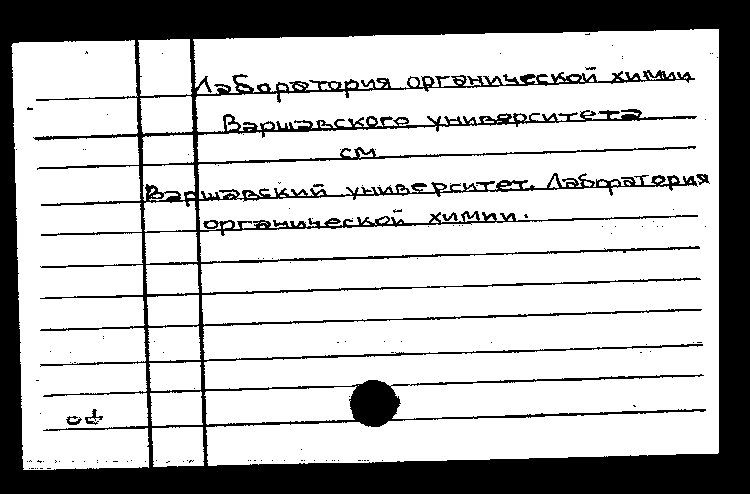 Лаборатория органической химии
Варшавского университета
см
Варшавский университет. Лаборатория
органической химии.